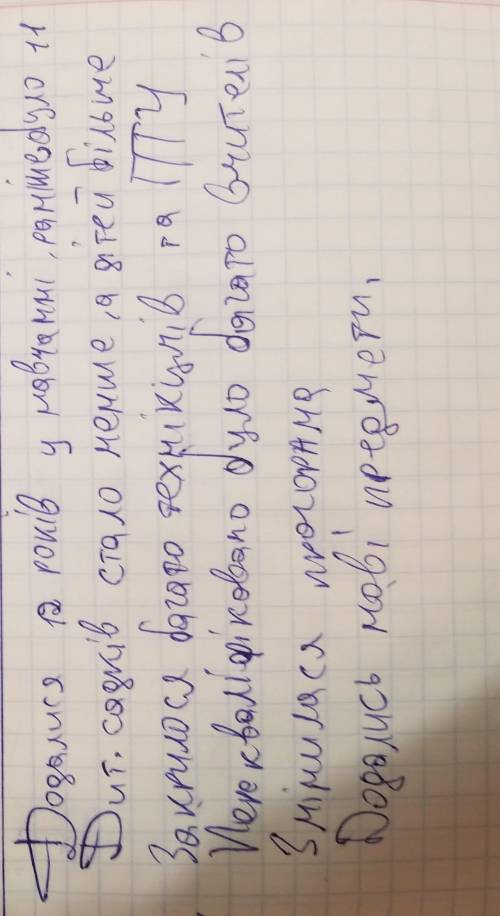 Додалися 12 років у навчанні, раніше було 11
Дит. садків стало менше, а дітей більше
Закрилося багато технікумів та ПТУ
Перекваліфіковано було багато вчителів
Змінилася програма
Додались нові предмети,